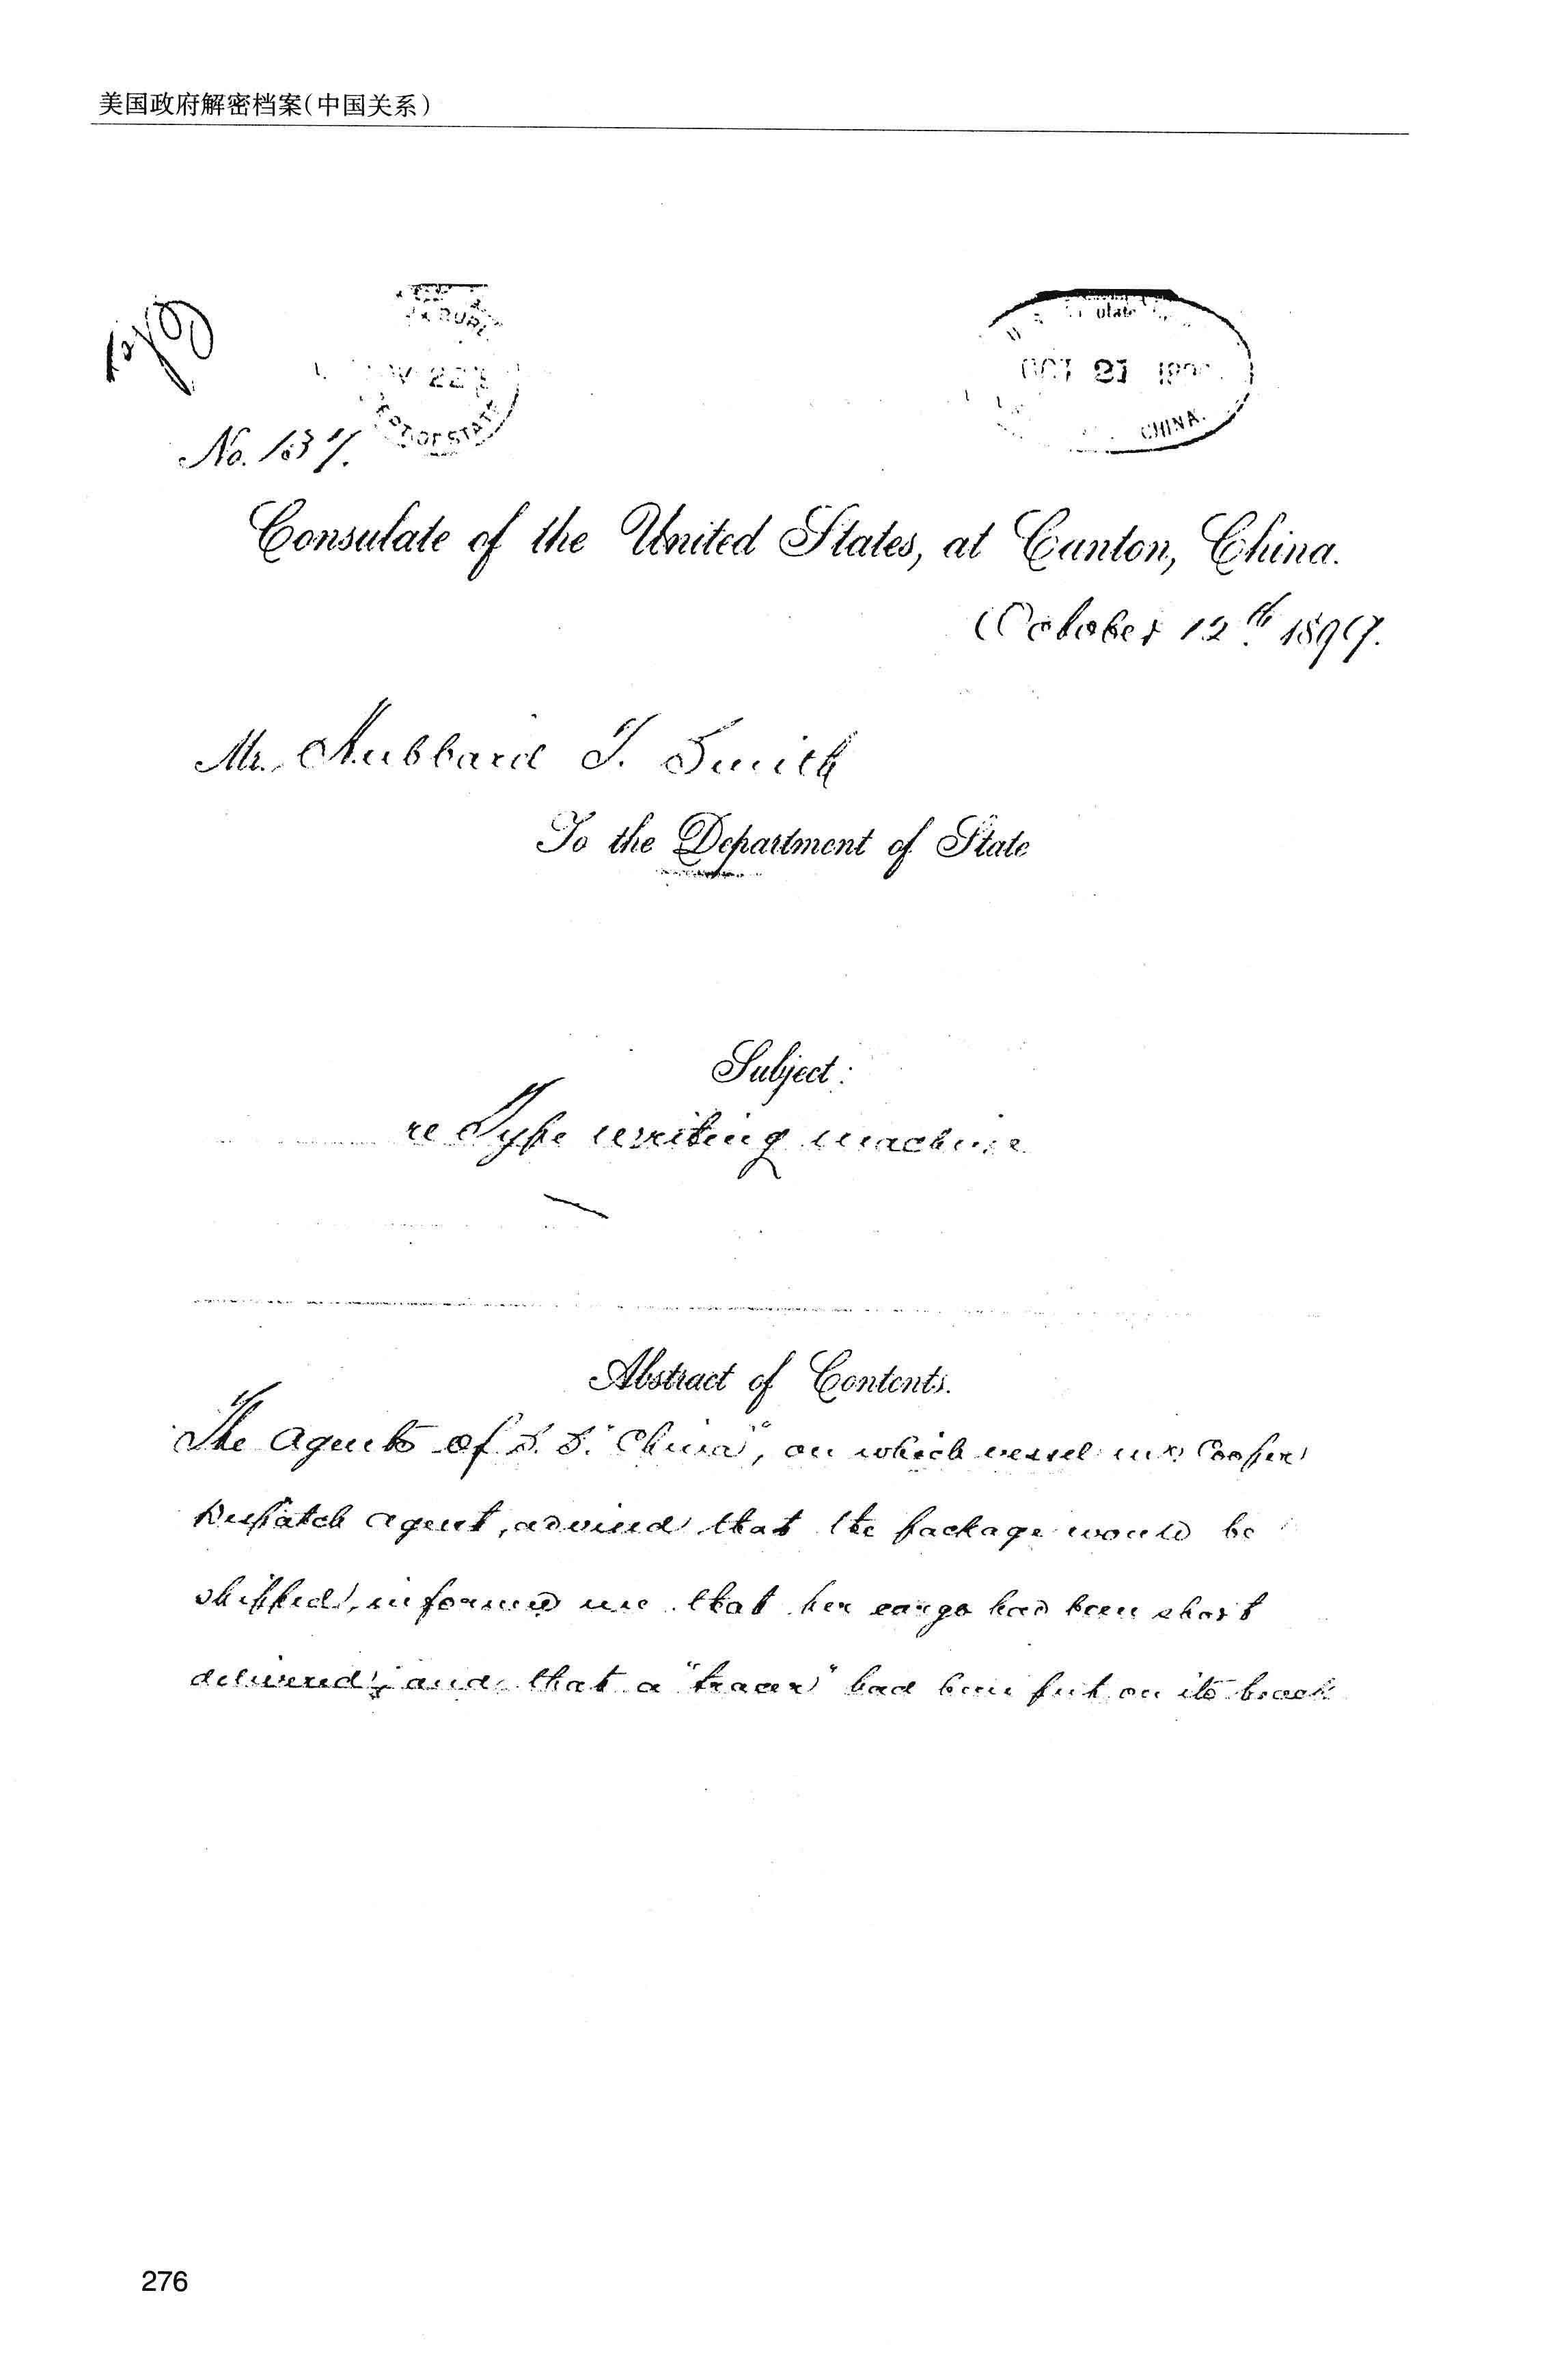 美国政府解密档案(中国关系)
CHINA.
DEPT OF STATE
No. 137.
Consulate of the United States, at Canton, China.
October 12th 1897.
Mr. Hubbard T. Smith
To the Department of State
Subject:
re Type writing machine
Abstract of Contents.
The Agents of S. S. "China", on which vessel Mr Cooper
Despatch Agent, advised that the package would be
shipped, informed me that her cargo had been short
delivered; and that a "tracer" had been put on its track
276